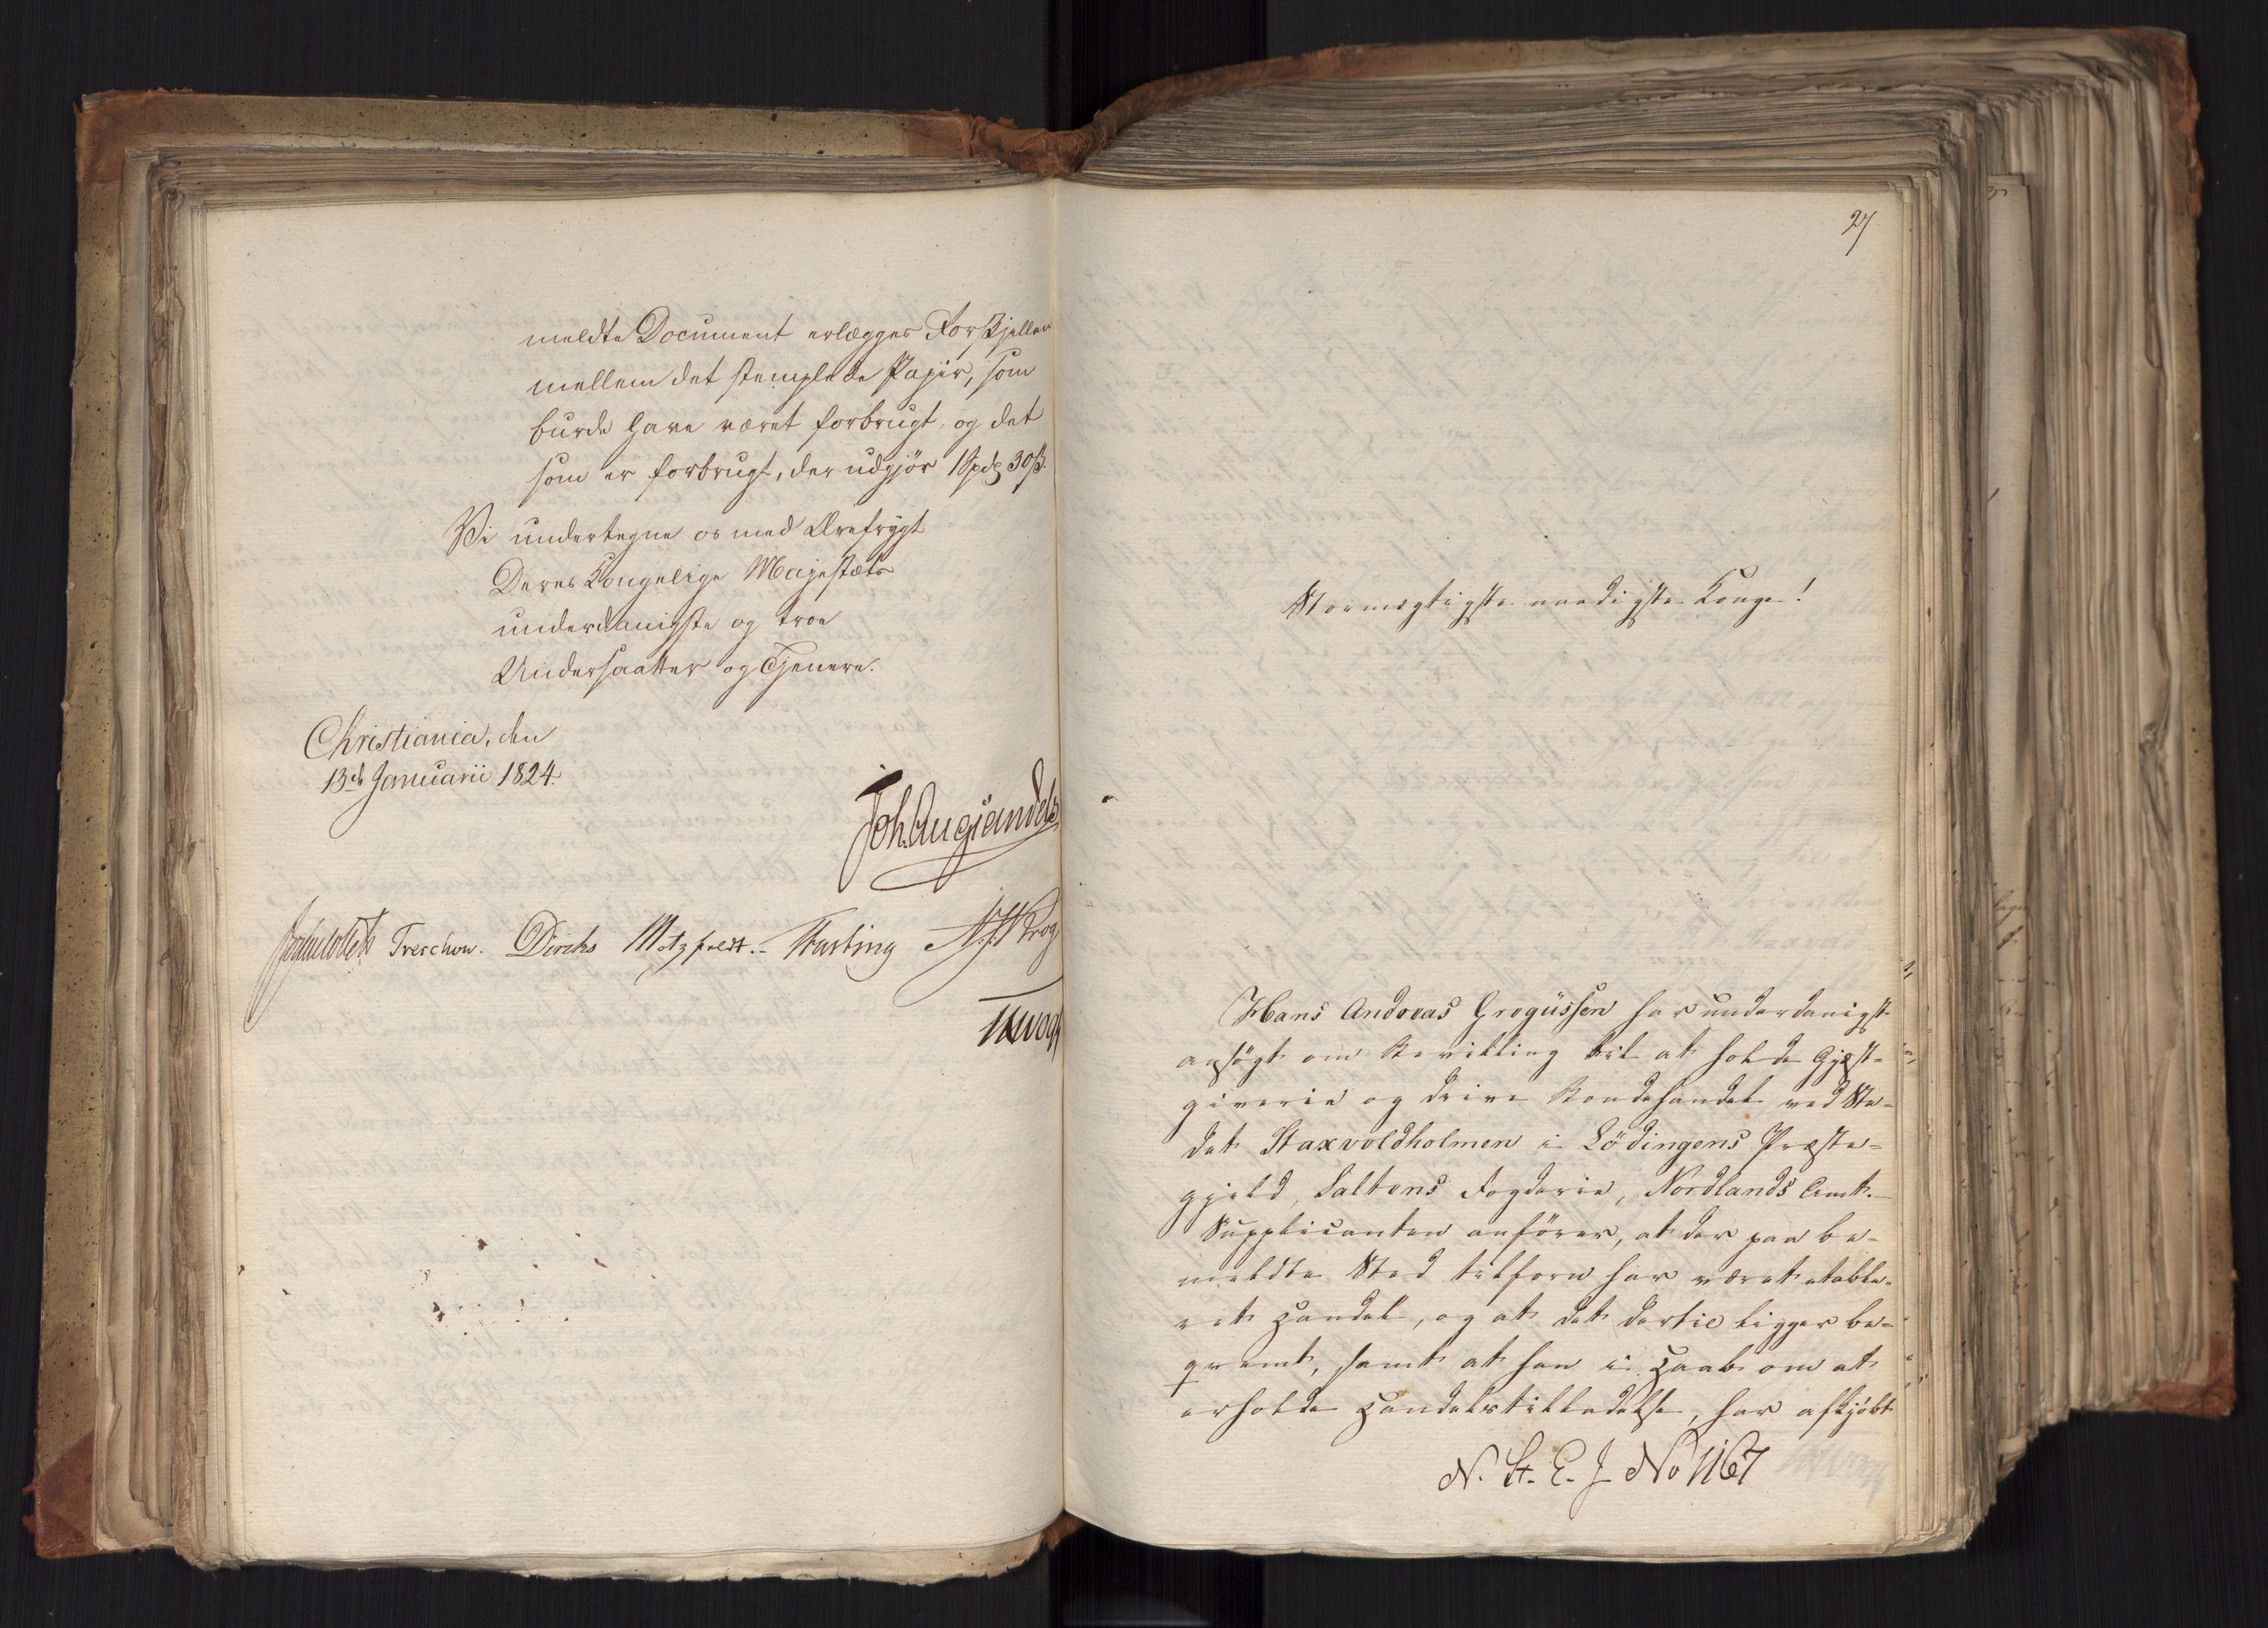 meldte Document erlægges Forskjellen
mellem det stemplede Papir, som
burde have været forbrugt, og det
som er forbrugt, der udgjör 1 Spd 30 ß.
Vi undertegne os med Ærefrygt
Deres Kongelige Majestæts
underdanigste og troe
Undersaatter og Tjenere.
Christiania, den
13de Januarii 1824.
Joh. Aug. Sandels
Treschow. Diriks Motzfeldt. Fasting
27
Stormægtigste naadigste Konge!
Hans Andreas Gregüssen har underdanigst
ansögt om Bevilling til at holde Gjæst-
giverie og drive Bondehandel ved Ste-
det Staxvoldholmen i Lödingens Præste-
gjeld, Saltens Fogderie, Nordlands Amt.
Supplicanten anförer, at der paa be-
meldte Sted tilforn har været etable-
ret Handel, og at det dertil ligger be-
qvemt, samt at han i Haab om at
erholde Handelstilladelse, har afkjöbt
N. St. E. J. No 1167